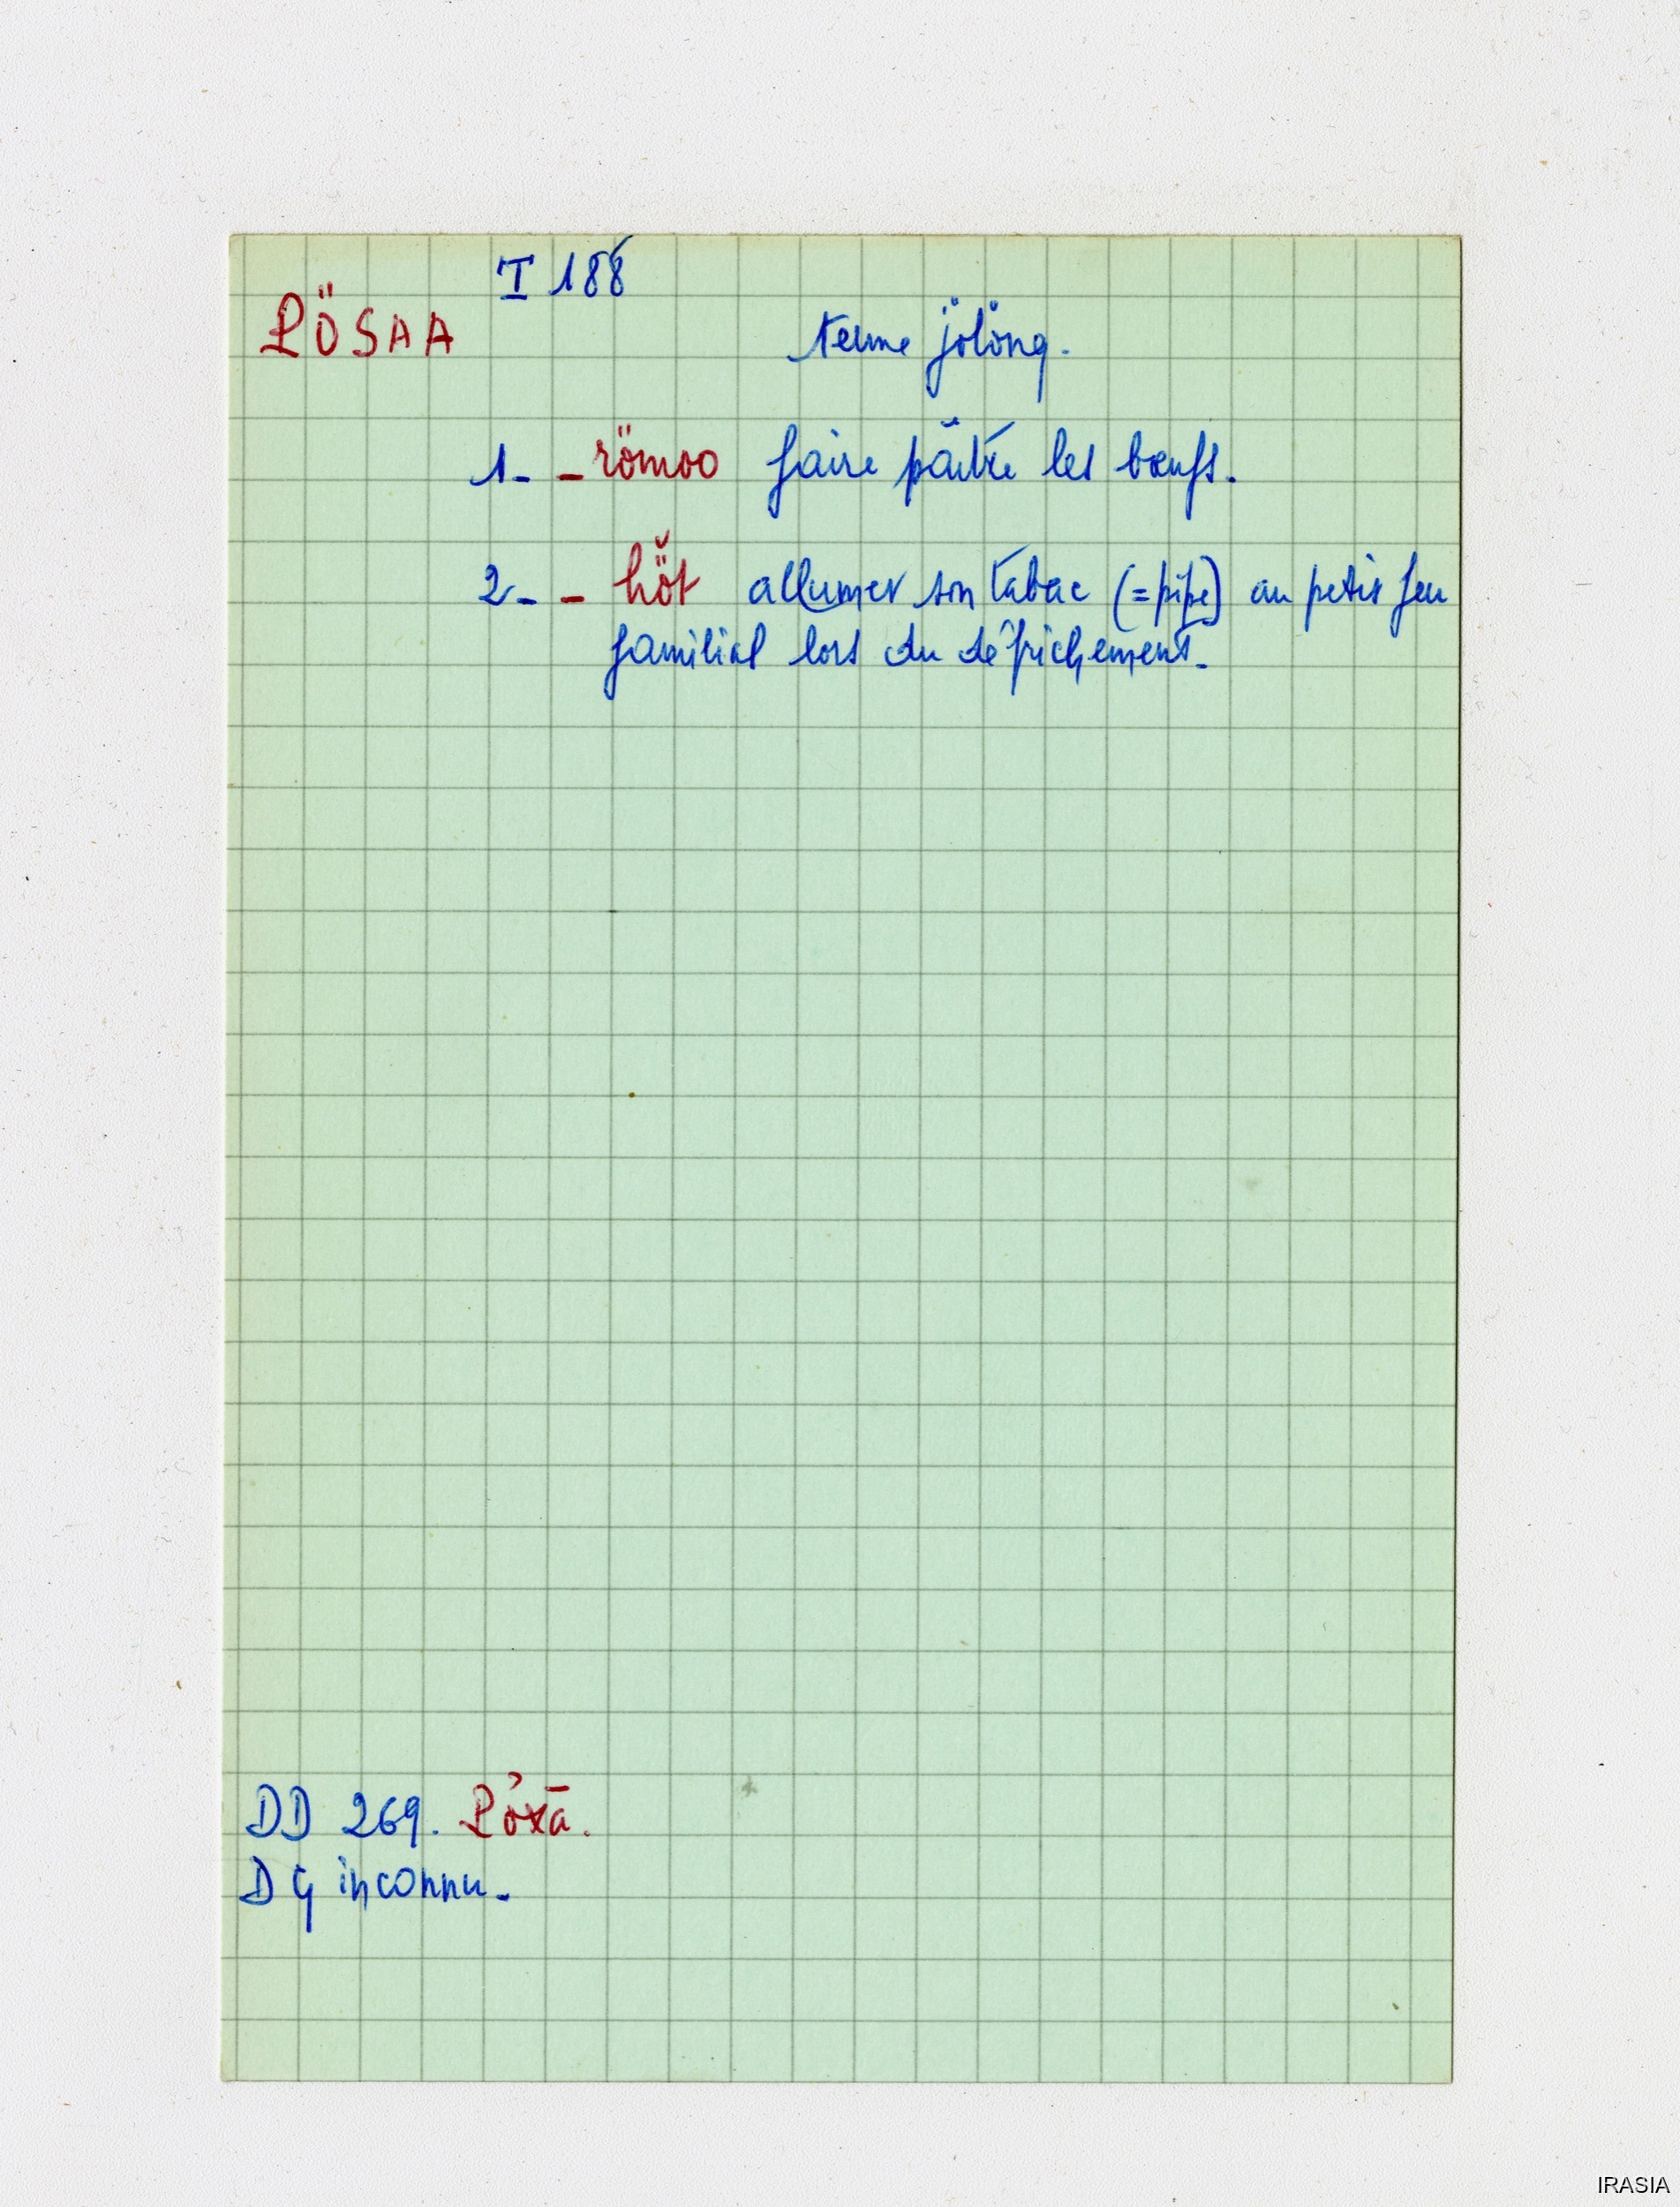 I 188
PÖSAA terme jölöng.
1- - römoo faire paître les bœufs.
2- - hö̆t allumer son tabac (= pipe) au petit feu
familial lors du défrichement.
DD 269. Pơxā.
DG inconnu.
IRASIA